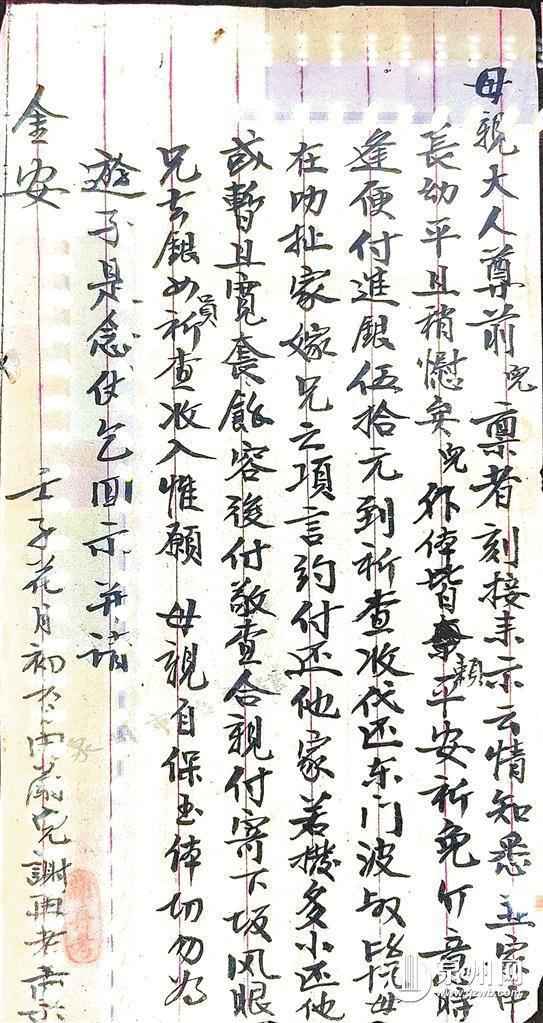 母親大人尊前兒 禀者刻接来示云情知悉 且家中
長幼平且稍慰矣兒外体皆賴平安祈免介意時
逢便付進銀伍拾元到祈查收代还东门波叔
在叻扯家嫁兄之項言約付还他家若撥多小还他
或暫且寬 容後付敬查合親付寄下坂风眼
兄去銀 員祈查收入惟願 母親自保玉体切勿為
遊子是念伏乞回示并請
金安
壬子花月初 兒謝
泉州网
www.qzwb.com